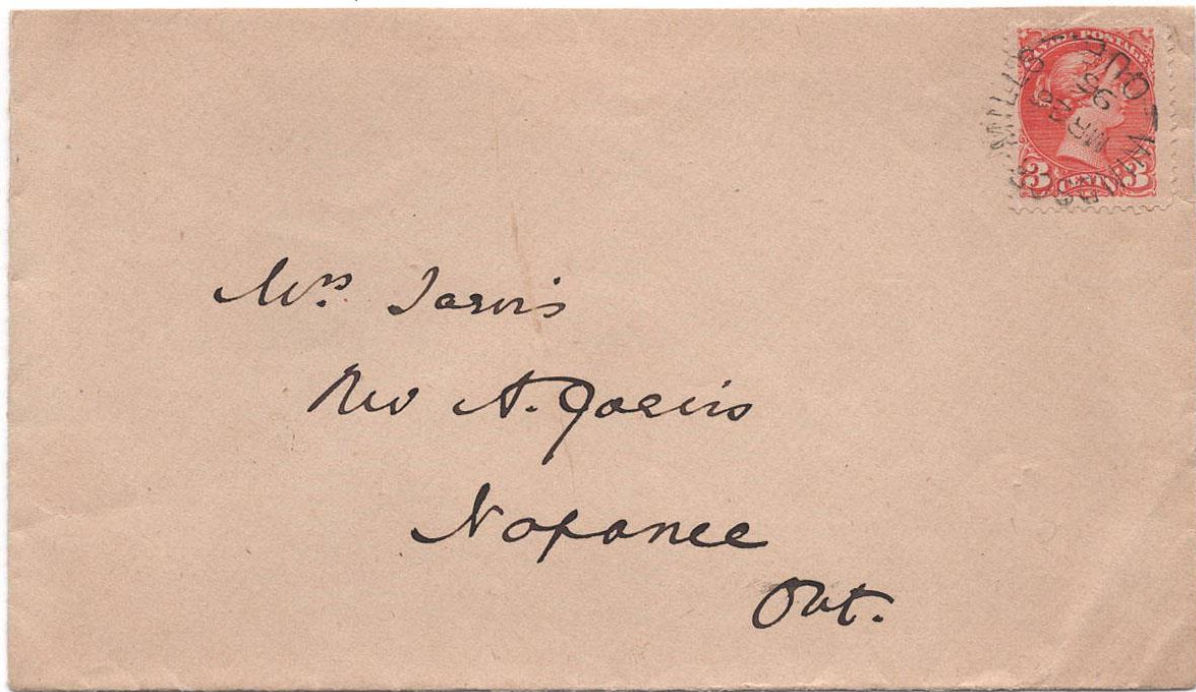 CANADA POSTAGE
3 CENTS 3
MILLS
QUE
MR
95
Mrs. Jarvis
Rev A. Jarvis
Napanee
Ont.